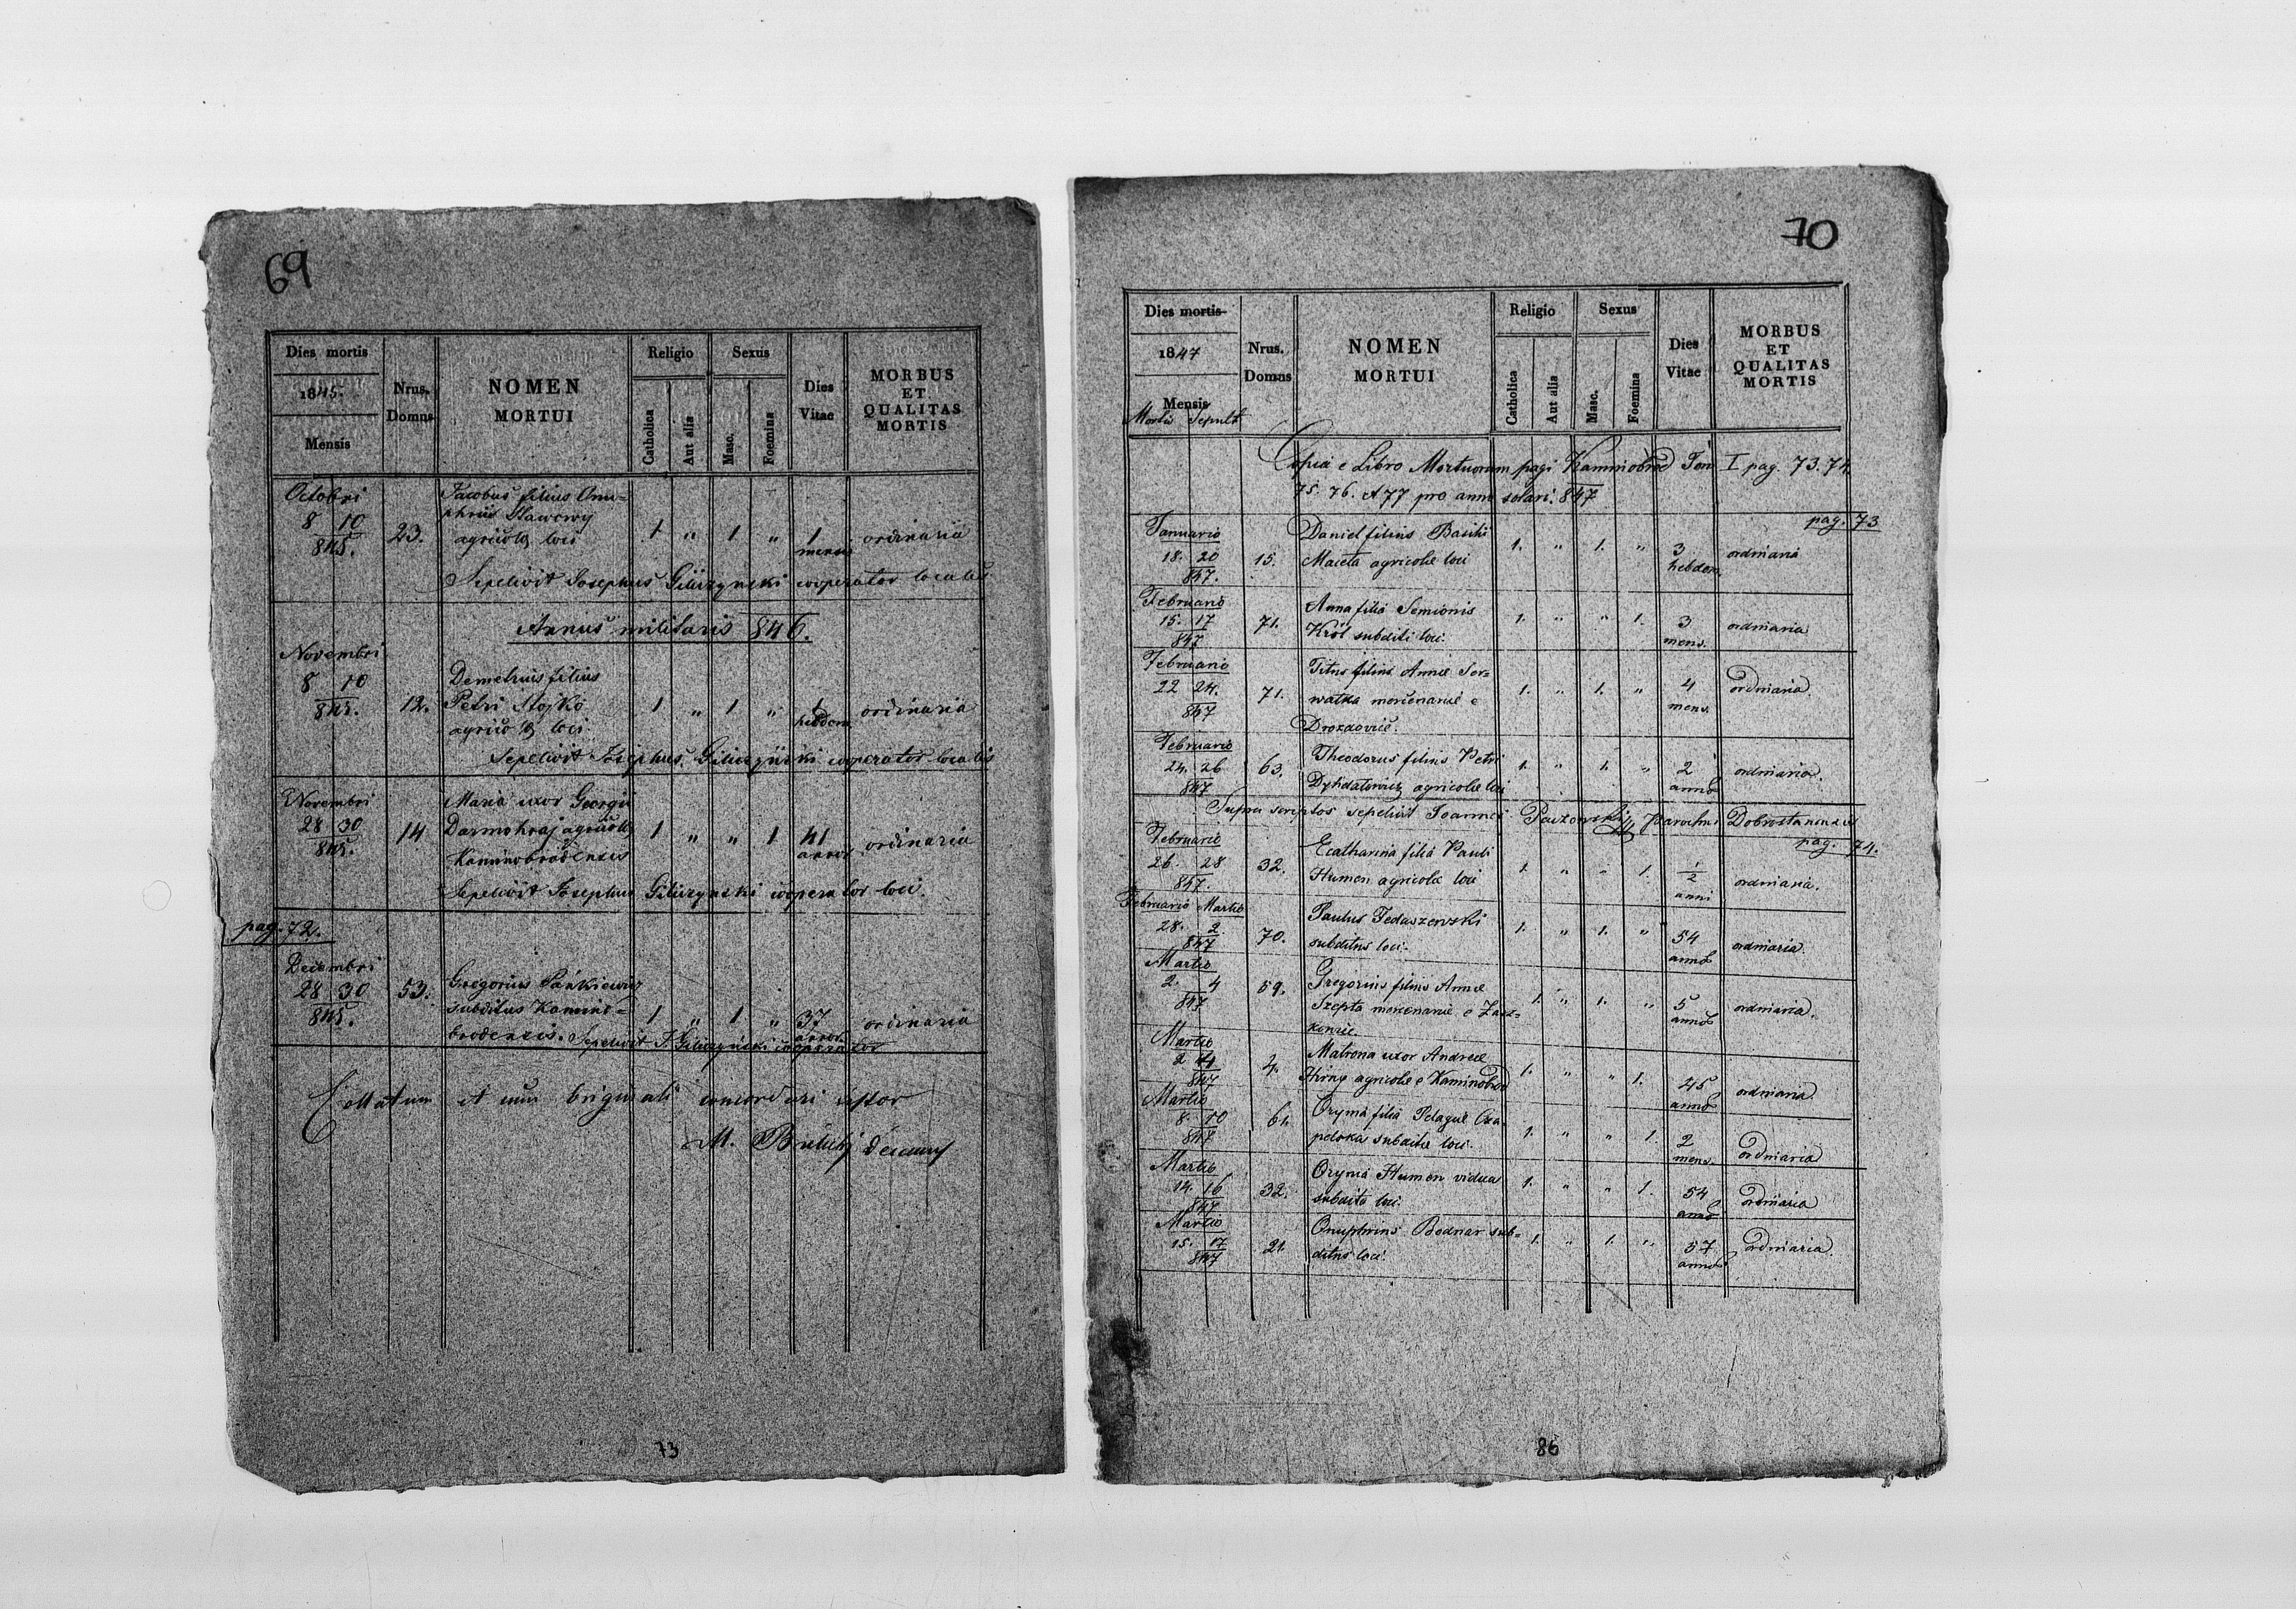 69
Dies mortis
1845.
Mensis
Nrus. Domus
NOMEN
MORTUI
Religio
Catholica
Aut alia
Sexus
Masc.
Foemina
Dies
Vitae
MORBUS
ET
QUALITAS
MORTIS
Octobri
8 10
845.
23.
Jacobus filius Onu-
phrii Hawowy
agricolae loci
1 " 1 " 1 mensis ordinaria
Sepelivit Josephus Giliczynski cooperator localis
Annus militaris 846.
Novembri
8 10
845.
12.
Demetrius filius
Petri Stojko
agricolae loci
1 " 1 " 1 hebdom. ordinaria
Sepelivit Josephus Giliczyński cooperator localis
Novembri
28 30
845.
14
Maria uxor Georgii
Darmohraj agricolae
Kaminobrodensis
1 " " 1 41 annor. ordinaria
Sepelivit Josephus Giliczynski cooperator loci.
pag. 72.
Decembri
28 30
845.
53.
Gregorius Pańkiewicz
subditus Kamino-
brodensis.
1 " 1 " 37 annor. ordinaria
Sepelivit J. Giliczyński cooperator
et cum originali
M.
73
70
Dies mortis
1847
Mensis
Mortis Sepult.
Nrus.
Domus
NOMEN
MORTUI
Religio
Catholica
Aut alia
Sexus
Masc.
Foemina
Dies
Vitae
MORBUS
ET
QUALITAS
MORTIS
Copia e Libro Mortuorum pagi Kaminobrod Tom I pag. 73. 74.
75. 76. et 77 pro anno solari. 847
pag. 73
Januario
18. 20
847.
15.
Daniel filius Basilii
Macęta agricolae loci
1. " 1. " 3 hebdom. ordinaria
Februario
15. 17
847
71.
Anna filia Semionis
Król subditi loci.
1. " " 1. 3 mens. ordinaria
Februario
22 24.
847
71.
Titus filius Annae Ser-
watka mercenariae e
Drozdovice.
1. " 1. " 4 mens. ordinaria.
Februario
24. 26
847
63.
Theodorus filius Petri
Dyhdalewicz agricolae loci
1. " 1. " 2 annor. ordinaria.
Supra scriptos sepelivit Joannes Paczowski Parochus Dobrostanensis
pag. 74.
Februario
26. 28
847.
32.
Ecatharina filia Pauli
Humen agricolae loci
1. " " 1. 1/2 anni ordinaria.
Februario Martio
28. 2.
847
70.
Paulus Fedaszewski
subditus loci.
1. " 1. " 54 annor. ordinaria.
Martio
2. 4
847
59.
Gregorius filius Annae
Szepta mercenariae e Zasz-
1. " 1. " 5 annor. ordinaria.
Martio
2 4
847
4.
Matrona uxor Andreae
Hirny agricolae e Kaminobrod
1. " " 1. 45 annor. ordinaria.
Martio
8. 10
847
61.
Oryna filia Pelagiae Cza-
pelska subditae loci.
1. " " 1. 2 mens. ordinaria
Martio
14. 16
847
32.
Oryna Humen vidua
subdita loci.
1. " " 1. 54 annor. ordinaria
Martio
15. 17
847
21.
Onuphrius Bednar sub-
ditus loci.
1. " 1. " 57 annor. ordinaria.
86